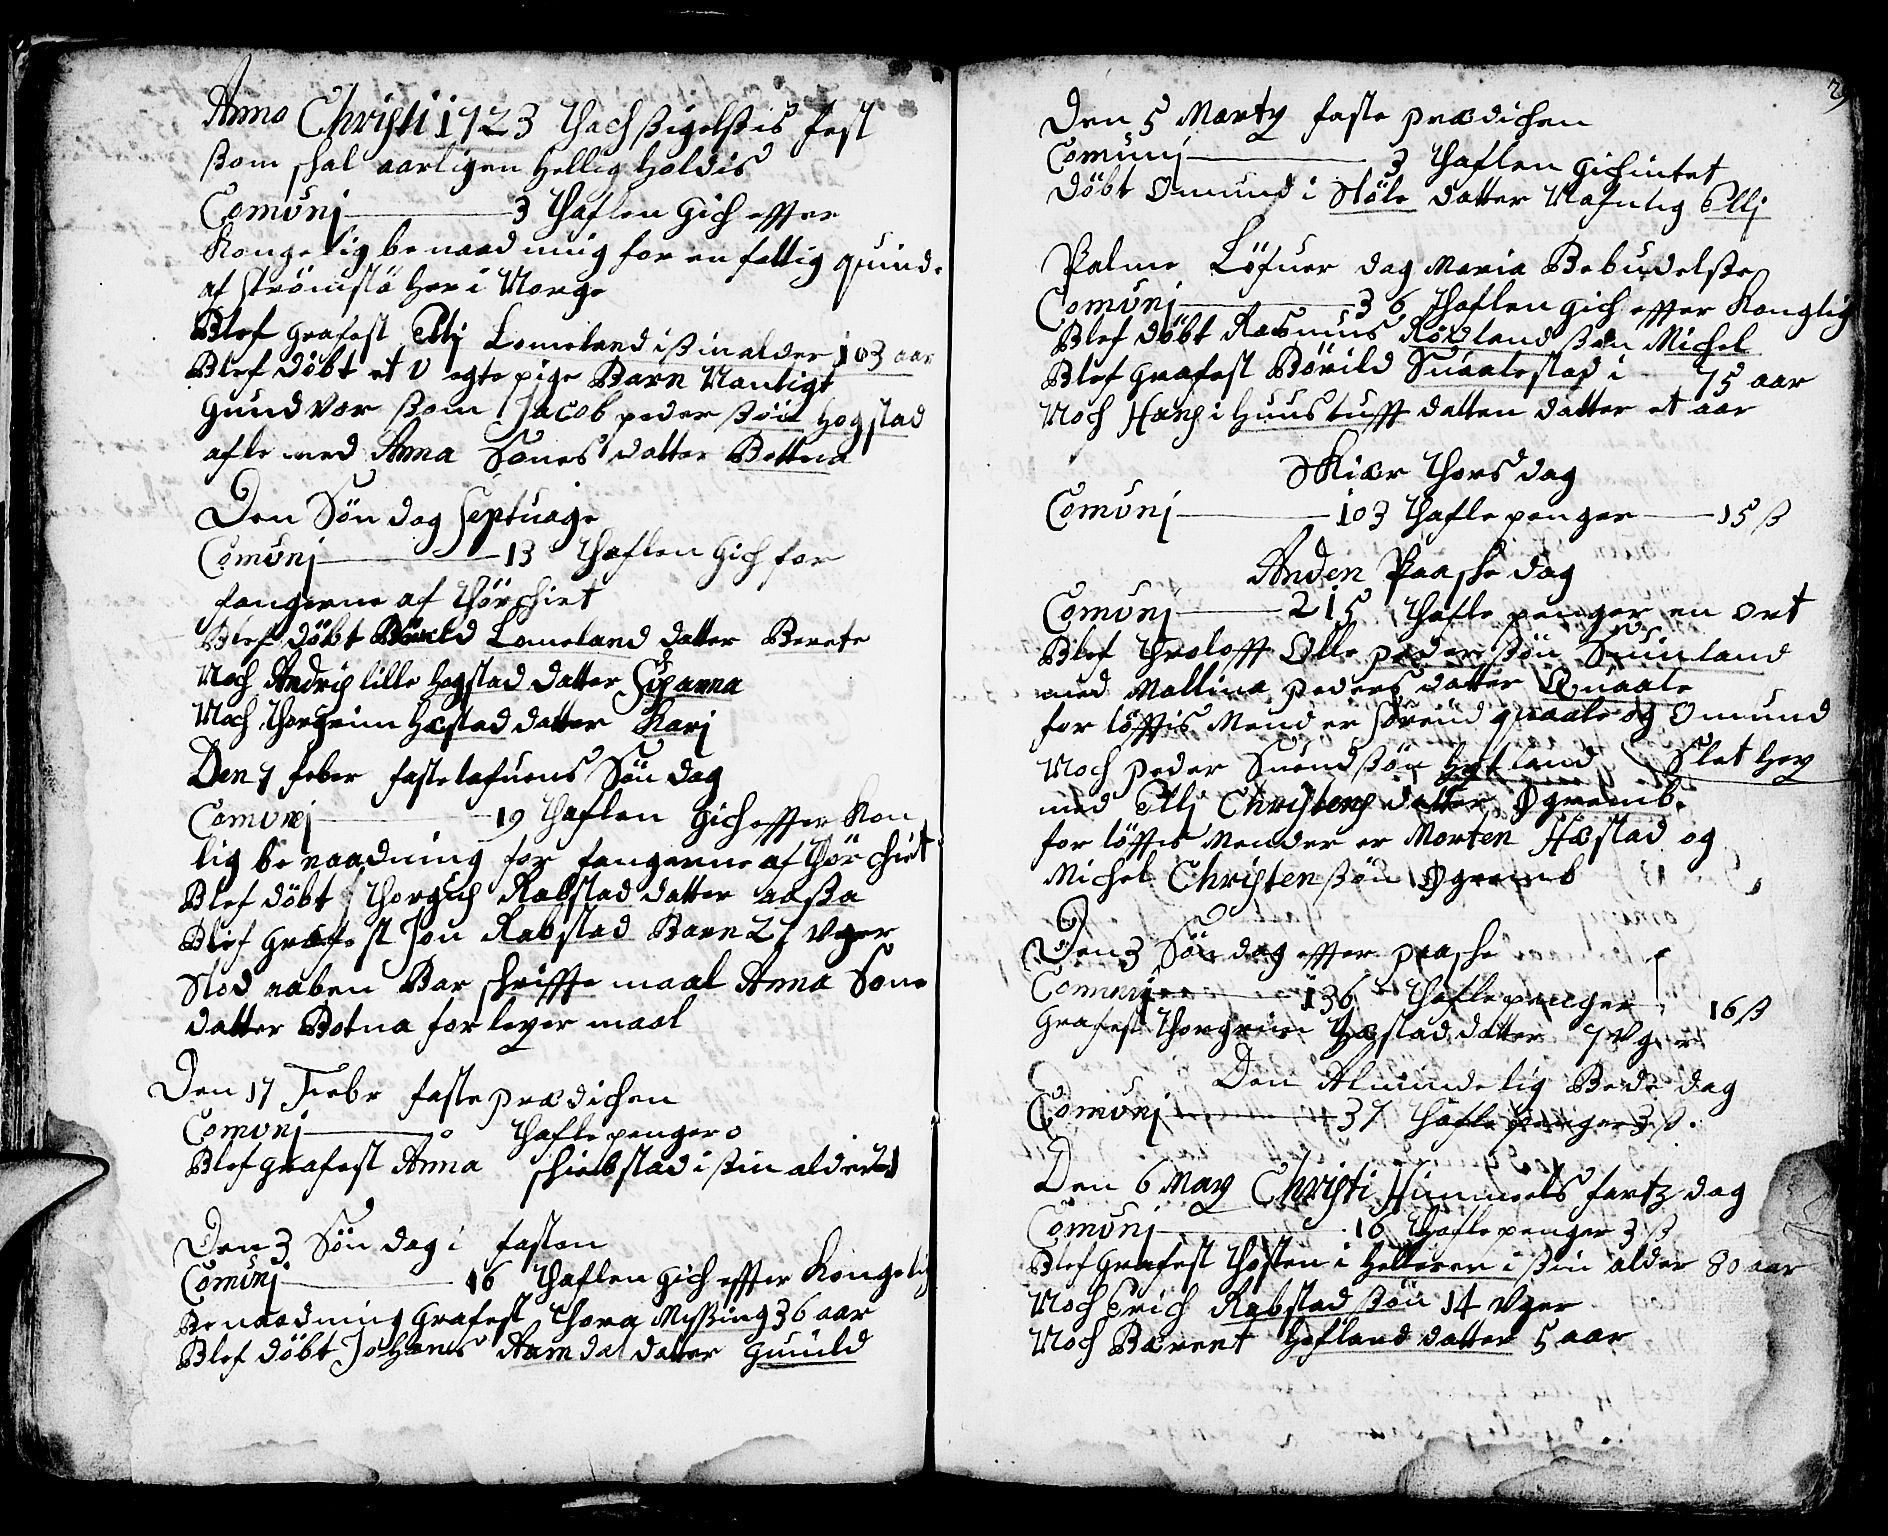 Anno Christi 1723 Thachsigelsis fest
som schal aarligen Hellig Holdis
Comúnj 3 Thaflen gich effter
Kongelig benaadning for en fattig quinde
af strömsö her i Norge
Blef grafest Ellj Lomeland i sin alder 103 aar
Blef döbt et U egte pige Barn Naulig
Gundvor som Jacob pedersön Hogstad
afle med Anna Sones datter Bottna
Den Söndag septuage
Comúnj 13 Thaflen gich for
fangerne af Thörchiet
Blef döbt Lomeland datter Berete
Noch Andris lille Hogstad datter Sisanna
Noch Thorgrim Hæstad datter Karj
Den 7 feber fastelafuens Söndag
Comúnj 19 Thaflen gich effter Kon
lig benaadning for fangerne af Thörchiet
Blef döbt Thorgich Rabstad datter aassa
Blef grafest Jon Rabstad Barn 27 Uger
Stod aaben Bar schriffte maal Anna Sone
datter Botna for leyermaal
Den 17 Febr faste prædichen
Comúnj 0 Thafle penger 0
Blef grafest Anna schiebstad i sin alder
Den 3 Söndag i fasten
Comúnj 16 Thaflen gich effter Kongelig
Benaadning grafest Thora Myssing 36 aar
Blef döbt Johanes Aamdal datter guuld
Den 5 Marty faste prædichen
Comúnj 3 Thaflen gich intet
döbt Omund i Stöle datter Nafnlig Ellj
Palme Löfuer dag Maria Bebudelsse
Comúnj 36 Thaflen gich effter Konglig
Blef döbt Rasmus Rödland sön Michel
Blef grafest Börild Suaalestad i 75 aar
Noch Hans i Huustufft datten datter et aar
Skiær Thorsdag
Comúnj 103 Thafle penger 15 ß
Anden Paaske dag
Comúnj 215 Thafle penger en ort
Blef Throlofft Olle pedersön Suinland
med Mallina peders datter Quaale
for löfftis Mend er söreud quaale og Omund
Noch peder Suendsön Hetland Slethey
med Ellj Christens datter Ögremb.
for löfftis Mender er Morten Hæstad og
Michel Christensön Ögremb
Den 3 Söndag effter paaske
Comúnj 136 Thafle penger 16 ß
Grafest Thorgrim Hæstad datter 7 Uger
Den Almindelig Bede dag
Comúnj 37 Thafle penger 3 ß.
Den 6 May Christi Himmels fartz dag
Comúnj 16 Thafle penger 3 ß
Blef grafest Thosten i Helleren i sin alder 80 aar
Noch Erich Rabstad sön 14 Uger
Noch Bærent Hefland datter 5 aar